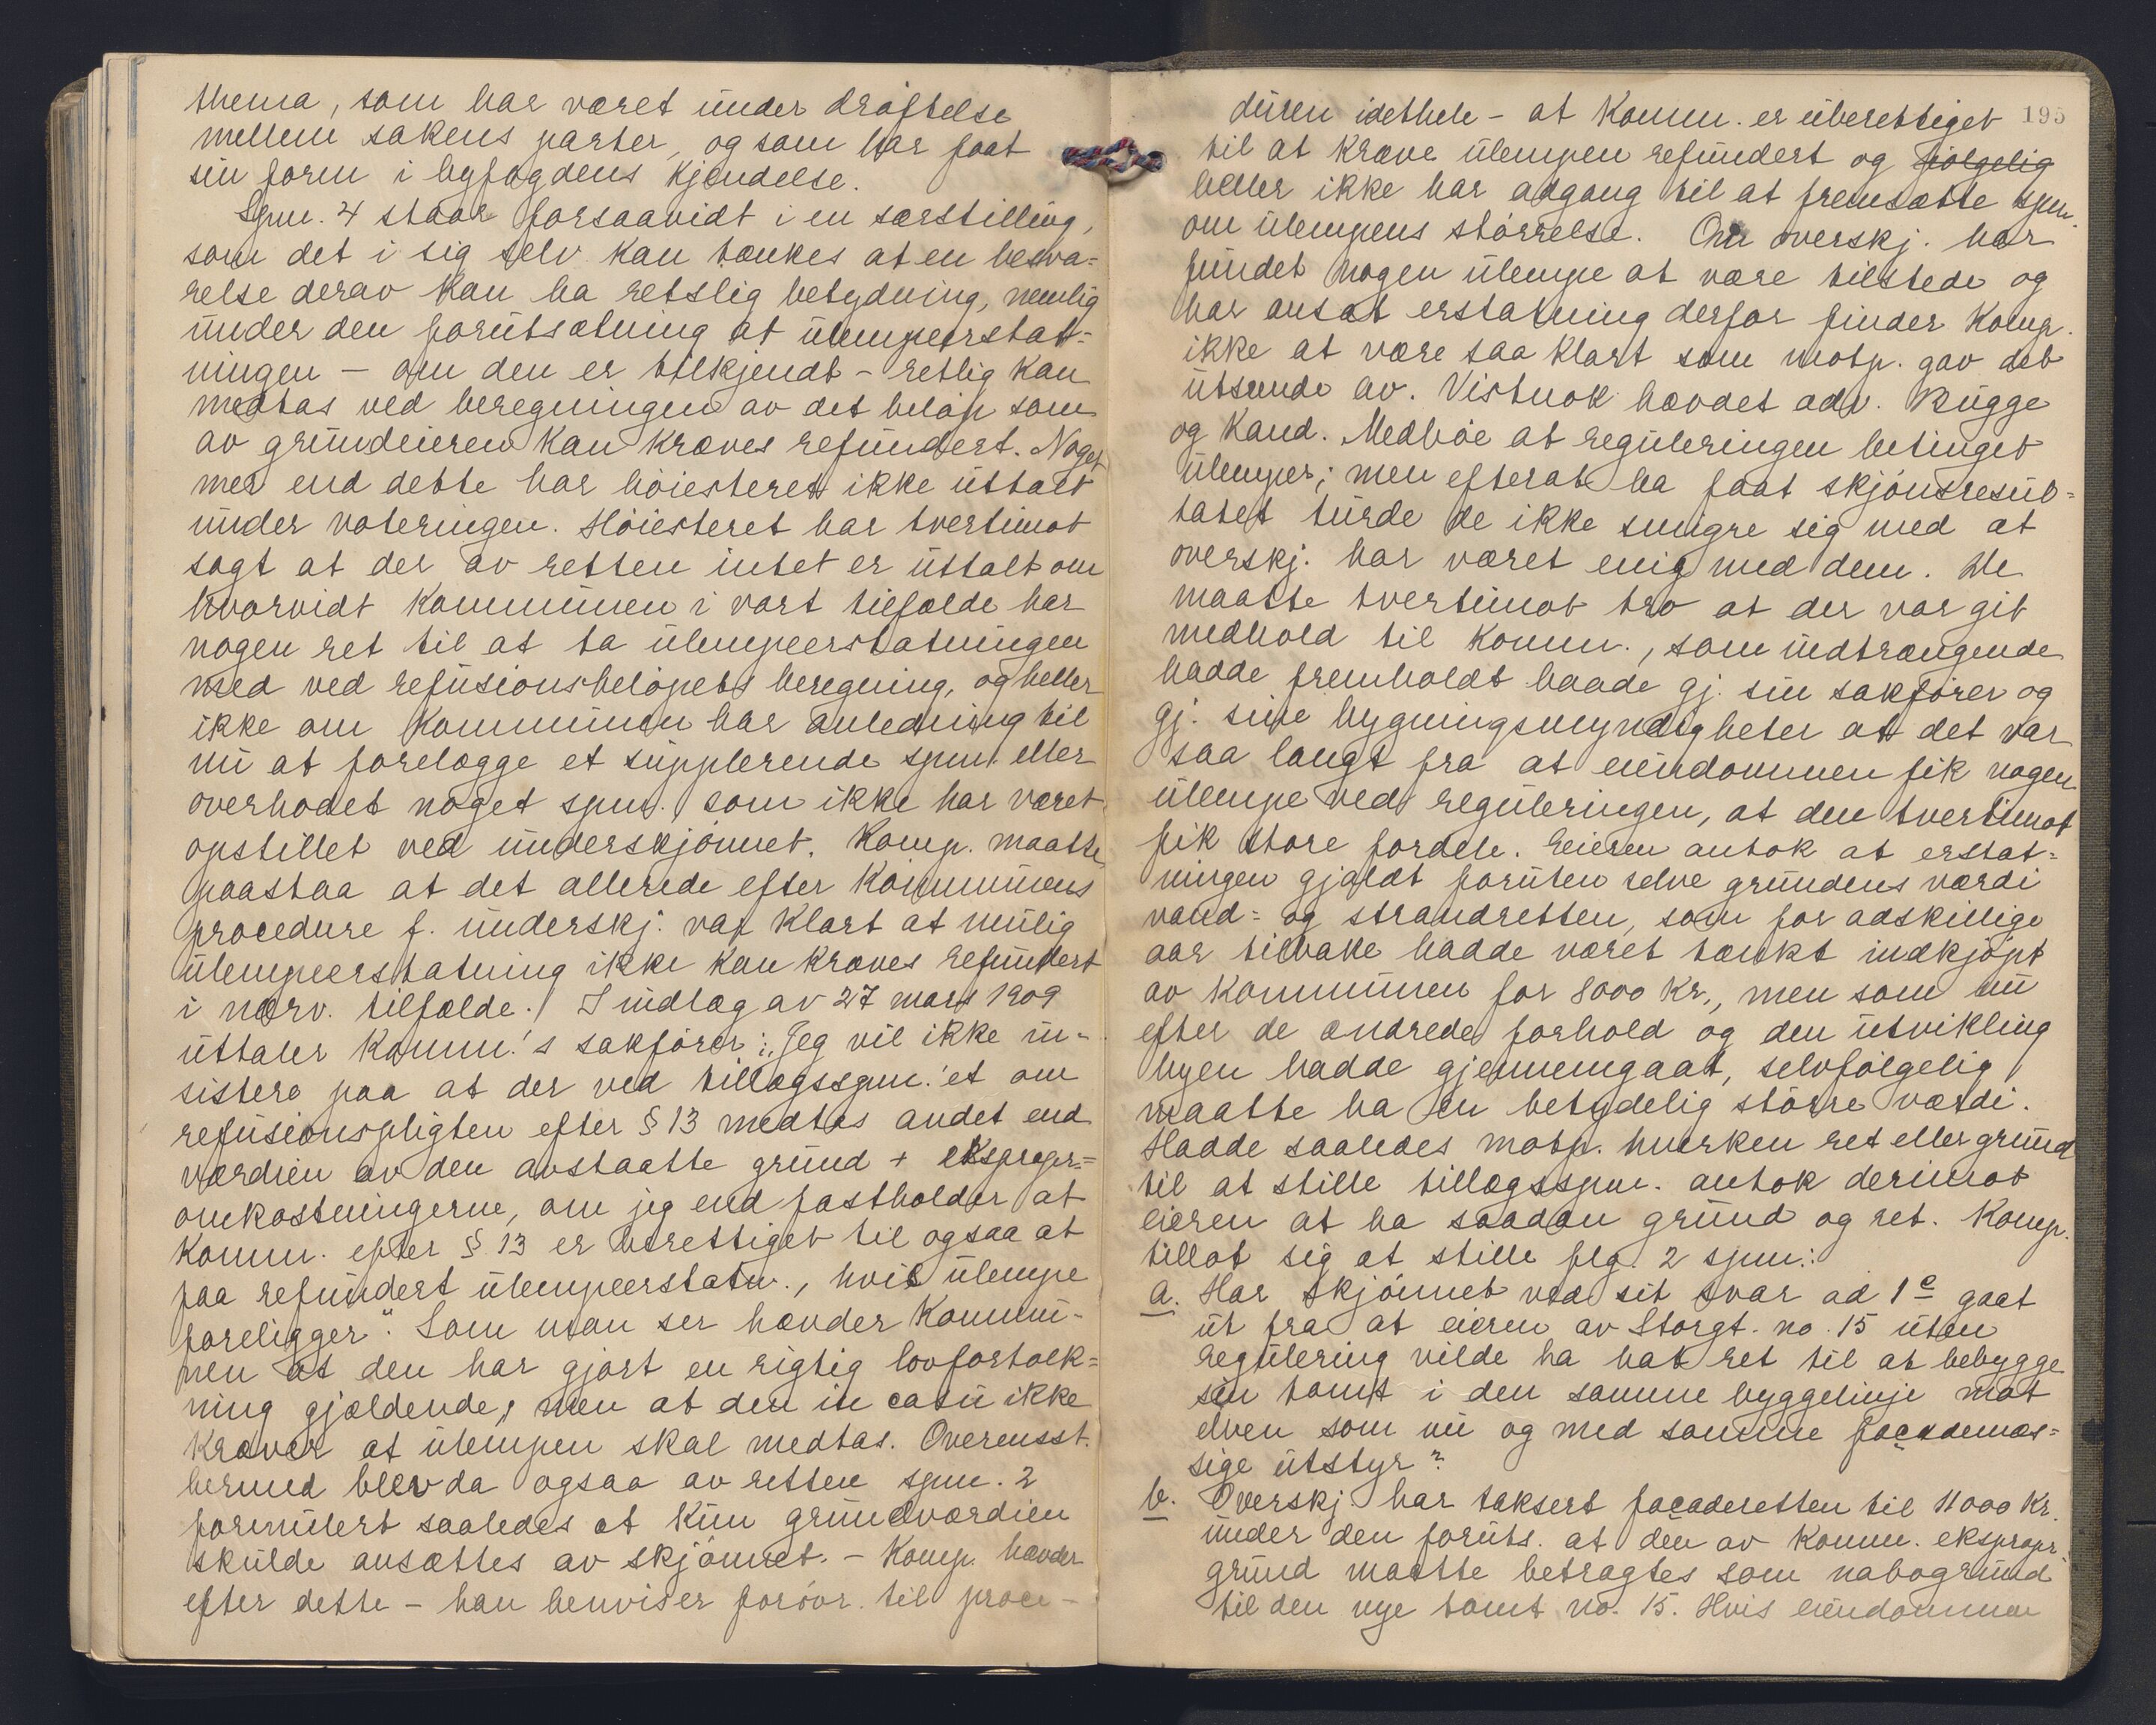 thema, som har været under drøftelse
mellem sakens parter, og som har faat
sin form i byfogdens kjendelse.
Spm. 4 staar forsaavidt i en særstilling,
som det i sig selv kan tænkes at en besva=
relse derav kan ha retslig betydning, nemlig
under den forutsætning at ulempeerstat=
ningen – om den er tilkjendt – retlig kan
medtas ved beregningen av det beløp som
av grundeieren kan kræves refundert. Noget
mer end dette har höiesteret ikke uttalt
under voteringen. Höiesteret har tvertimot
sagt at der av retten intet er uttalt om
hvorvidt kommunen i vort tilfælde har
nogen ret til at ta ulempeerstatningen
med ved refusionsbelöpets beregning, og heller
ikke om kommunen har anledning til
nu at forelægge et supplerende spm. eller
overhodet noget spm. som ikke har været
opstillet ved underskjönnet. Komp. maatte
paastaa at det allerede efter kommunens
procedure f. underskj. var klart at mulig
ulempeerstatning ikke kan kræves refundert
i nærv. tilfælde. I indlæg av 27 mars 1909
uttaler komm.'s sakförer: „Jeg vil ikke in-
sistere paa at der ved tillægsspm.'et om
refusionspligten efter § 13 medtas andet end
værdien av den avstaatte grund + ekspropr.=
omkostningerne, om jeg end fastholder at
komm. efter § 13 er berettiget til ogsaa at
faa refundert ulempeerstatn., hvis ulempe
foreligger". Som man ser hævder kommu-
nen at den har gjort en rigtig lovfortolk=
ning gjældende, men at den in casu ikke
kræver at ulempen skal medtas. Overensst.
hermed blev da ogsaa av retten spm. 2
formulert saaledes at kun grundværdien
skulde ansættes av skjönnet. – Komp. hævder
efter dette – han henviser forövr. til proce-
195
duren idethele – at komm. er uberettiget
til at kræve ulempen refundert og følgelig
heller ikke har adgang til at fremsætte spm.
om ulempens störrelse. Om overskj. har
fundet nogen ulempe at være tilstede og
har ansat erstatning derfor finder komp.
ikke at være saa klart som motp. gav det
utseende av. Vistnok hævdet adv. Bugge
og kand. Medböe at reguleringen betinget
ulemper; men efterat ha faat skjönsresul=
tatet turde de ikke smigre sig med at
overskj. har været enig med dem. De
maatte tvertimot tro at der var git
medhold til komm., som indtrængende
hadde fremholdt baade gj. sin sakförer og
gj. sine bygningsmyndigheter at det var
saa langt fra at eiendommen fik nogen
ulempe ved reguleringen, at den tvertimot
fik store fordele. Eieren antok at erstat=
ningen gjaldt foruten selve grundens værdi
vand= og strandretten, som for adskillige
aar tilbake hadde været tænkt indkjöpt
av kommunen for 8000 kr., men som nu
efter de ændrede forhold og den utvikling
byen hadde gjennemgaat, selvfölgelig
maatte ha en betydelig större værdi.
Hadde saaledes motp. hverken ret eller grund
til at stille tillægsspm. antok derimot
eieren at ha saadan grund og ret. Komp.
tillot sig at stille flg. 2 spm.:
a. Har skjönnet ved sit svar ad 1<sup>o</sup> gaat
ut fra at eieren av Storgt. no. 15 uten
regulering vilde ha hat ret til at bebygge
sin tomt i den samme byggelinje mot
elven som nu og med samme façademæs=
sige utstyr?
b. Overskj. har taksert façaderetten til 11000 kr.
under den foruts. at den av komm. ekspropr.
grund maatte betragtes som nabogrund
til den nye tomt no. 15. Hvis eiendommen